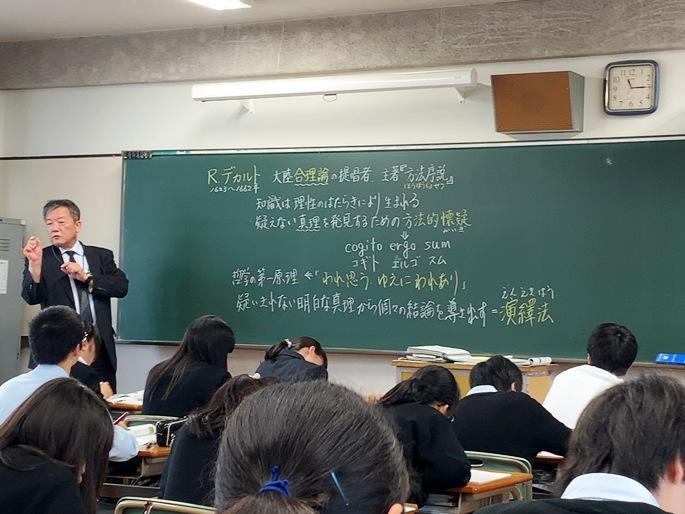 R.デカルト 大陸合理論の提唱者 主著『方法序説』
1623〜1662年 ほうほうじょせつ
知識は理性のはたらきにより生まれる
疑えない真理を発見するための方法的懐疑
かいぎ
cogito ergo sum
コギト エルゴ スム
哲学の第一原理←「われ思う、ゆえにわれあり」
えんえきほう
疑いきれない明白な真理から個々の結論を導き出す=演繹法